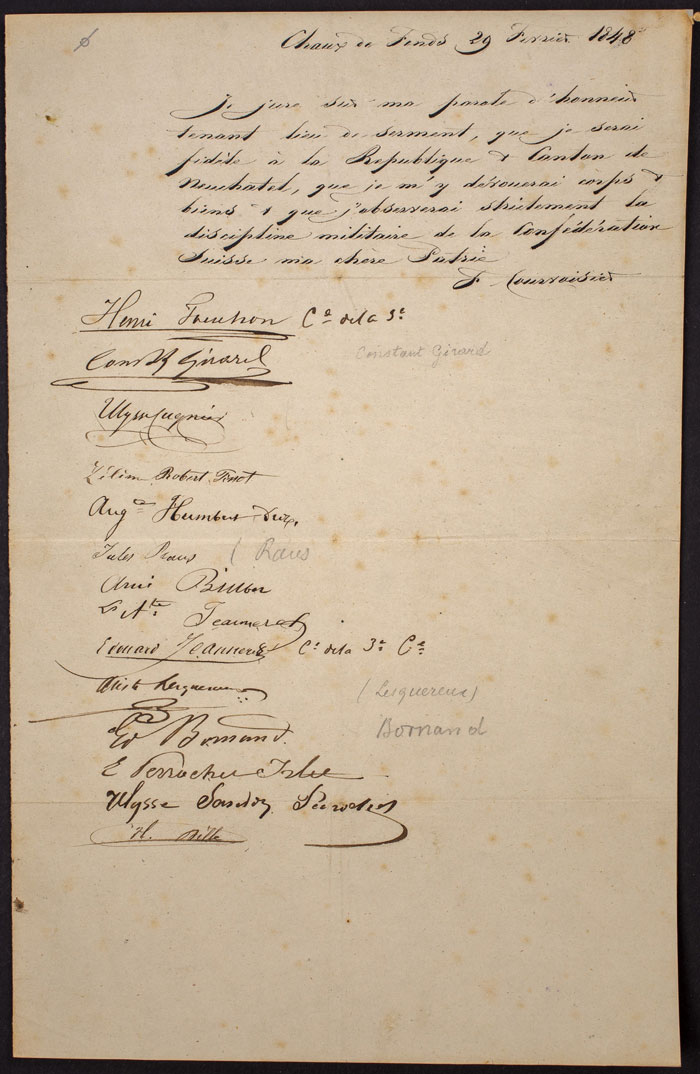 Chaux de Fonds 29 Fevrier 1848
Je jure sur ma parole d'honneur
tenant lieu de serment, que je serai
fidèle à la Republique & Canton de
Neuchatel, que je m'y dévouerai corps &
biens & que j'observerai strictement la
discipline militaire de la Confédération
Suisse ma chère Patrie
F. Courvoisier
Henri Cn de la 3e
Const Girard
Constant Girard
Ulysse
Zélim Robert
Augte Humbert Droz
Jules Raus
( Raus
Ami
Ate Jeanneret
Edouard Jeanneret Ct de la 3e Ce
Lesquereux
(Lesquereux)
Ed Bornand.
Bornand
E Perrochet
Ulysse Sandoz
H.